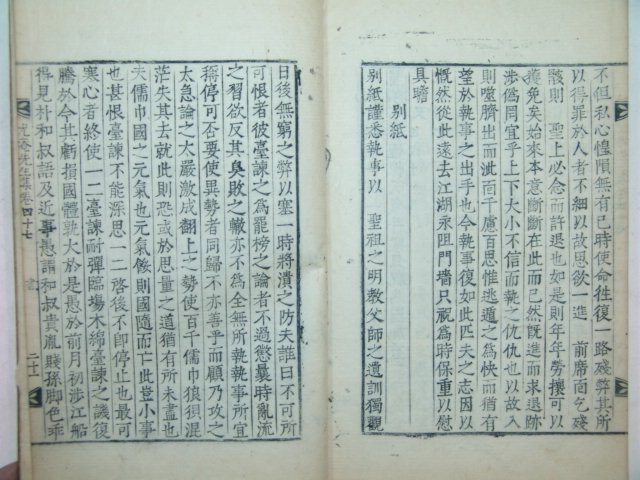 不但私心惶隕無有已時使命往復一路殘弊其所
以得罪於人者不細以故思欲一進 前席面乞殘
骸則 聖上必念而許退也如是則年年勞攘可以
獲免矣始來本意斷斷在此而已然旣進而求退跡
涉僞罔宜乎上下大小不信而執之仇仇也以故入
則噬臍出而泚面千慮百思惟逃遁之爲快而猶有
望於執事之出手也今執事復如此匹夫之志因以
慨然從此遠去江湖永阻門墻只視爲時保重以慰
具瞻
別紙
別紙謹悉執事以 聖祖之明敎父師之遺訓獨觀
日後無窮之弊以塞一時將潰之防夫誰曰不可所
可恨者彼臺諫之爲罷榜之論者不過懲曩時亂流
之習欲反其臭敗之轍亦不爲全無所執執事所宜
稱停可否要使異勢者同歸不亦善乎而顧乃攻之
太急論之太嚴敵成翻上之勢使百千儒巾狼狽混
茫失其去就此則恐或於思量之道猶有所未盡也
夫儒巾國之元氣也元氣傷則國隨而亡此豈小事
也甚恨臺諫不能深思一二啓後不卽停止也最可
寒心者終使一二臺諫耐彈臨場木綿臺諫之譏復
騰於今其虧損國體孰大於是愚於前月初涉江船
得見朴和叔語及近事愚謂和叔貴胤賤孫脚色乖
尤菴先生集卷四十七 二十一